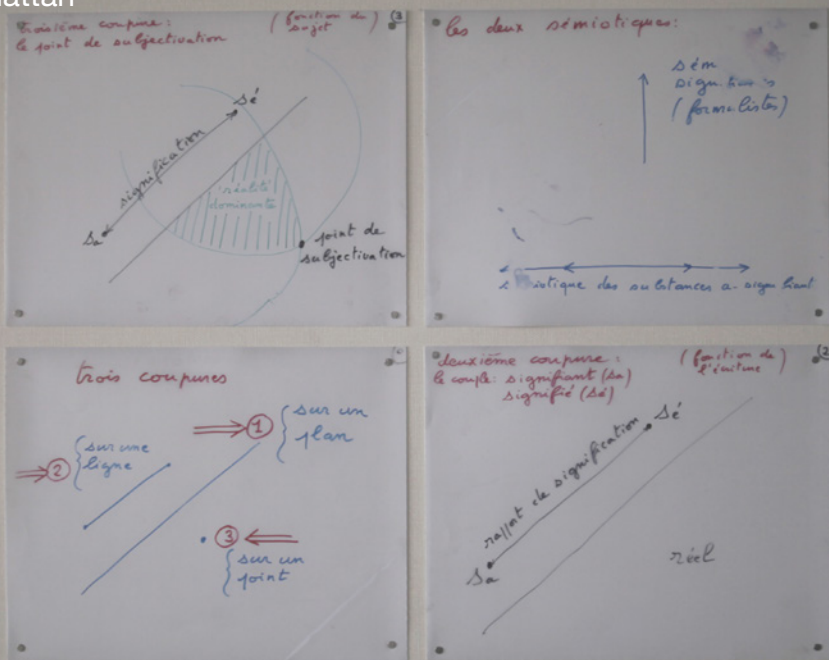 troisième coupure :
le point de subjectivation
(fonction du
sujet)
3
sé
signification
sa
réalité
dominante
point de
subjectivation
les deux sémiotiques :
sém
(formalistes)
des substances a-
trois coupures
1
sur un
plan
2
sur une
ligne
3
sur un
point
deuxième coupure :
le couple : signifiant (sa)
signifié (sé)
(fonction de
l'écriture)
2
sé
rapport de signification
sa
réel